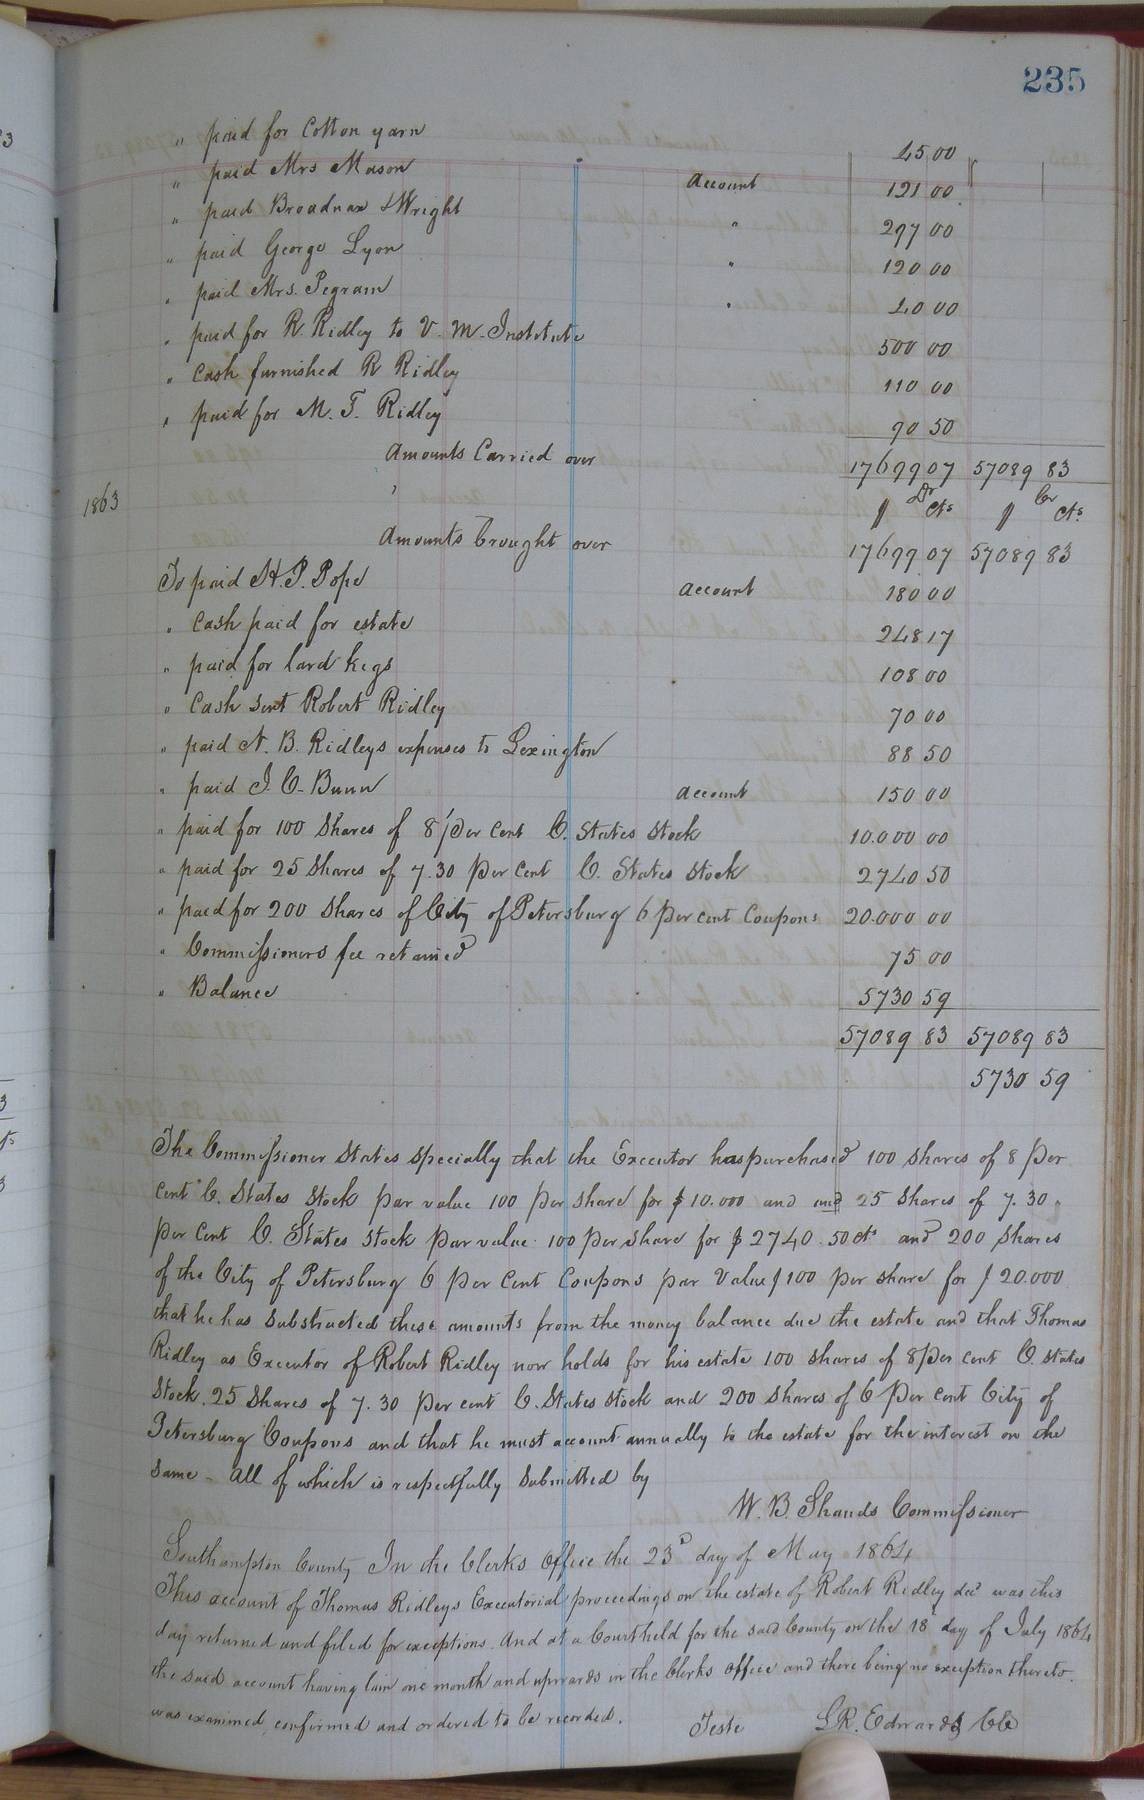 235
" paid for Cotton yarn 45 00
" paid Mrs Mason account 121 00
" paid Broadnax & Wright " 297 00
" paid George Lyon " 120 00
" paid Mrs. Pegram " 40 00
" paid for R. Ridley to V. M. Institute 500 00
" Cash furnished R Ridley 110 00
" paid for M. T. Ridley 90 50
Amounts Carried over 17699 07 57089 83
1863 $ Dr cts $ Cr cts.
Amounts brought over 17699 07 57089 83
To paid H. P. Pope account 180 00
" Cash paid for estate 248 17
" paid for lard kegs 108 00
" Cash sent Robert Ridley 70 00
" paid N. B. Ridleys expenses to Lexington 88 50
" paid J. C. Bunn account 150 00
" paid for 100 Shares of 8 per cent C. States Stock 10.000 00
" paid for 25 Shares of 7.30 per Cent C. States Stock 2740 50
" paid for 200 Shares of City of Petersburg 6 per cent Coupons 20.000 00
" Commissioners fee retained 75 00
" Balance 5730 59
57089 83 57089 83
5730 59
The Commissioner States specially that the Executor has purchased 100 shares of 8 per
cent C. States Stock par value 100 per share for $10.000 and and 25 Shares of 7.30
per Cent C. States stock par value 100 per share for $2740.50 cts and 200 shares
of the City of Petersburg 6 per Cent Coupons par value $100 per share for $20.000
that he has substracted these amounts from the money balance due the estate and that Thomas
Ridley as Executor of Robert Ridley now holds for his estate 100 shares of 8 per cent C. States
Stock. 25 Shares of 7.30 per cent C. States stock and 200 Shares of 6 per cent City of
Petersburg Coupons and that he must account annually to the estate for the interest on the
same - All of which is respectfully submitted by
W. B. Shands Commissioner
Southampton County In the Clerks Office the 23d day of May 1864
This account of Thomas Ridleys Executorial proceedings on the estate of Robert Ridley decd was this
day returned and filed for exceptions. And at a Court held for the said County on the 18th day of July 1864
the said account having lain one month and upwards in the Clerks office and there being no exception thereto
was examined, confirmed and ordered to be recorded.
Teste L. R. Edwards CC